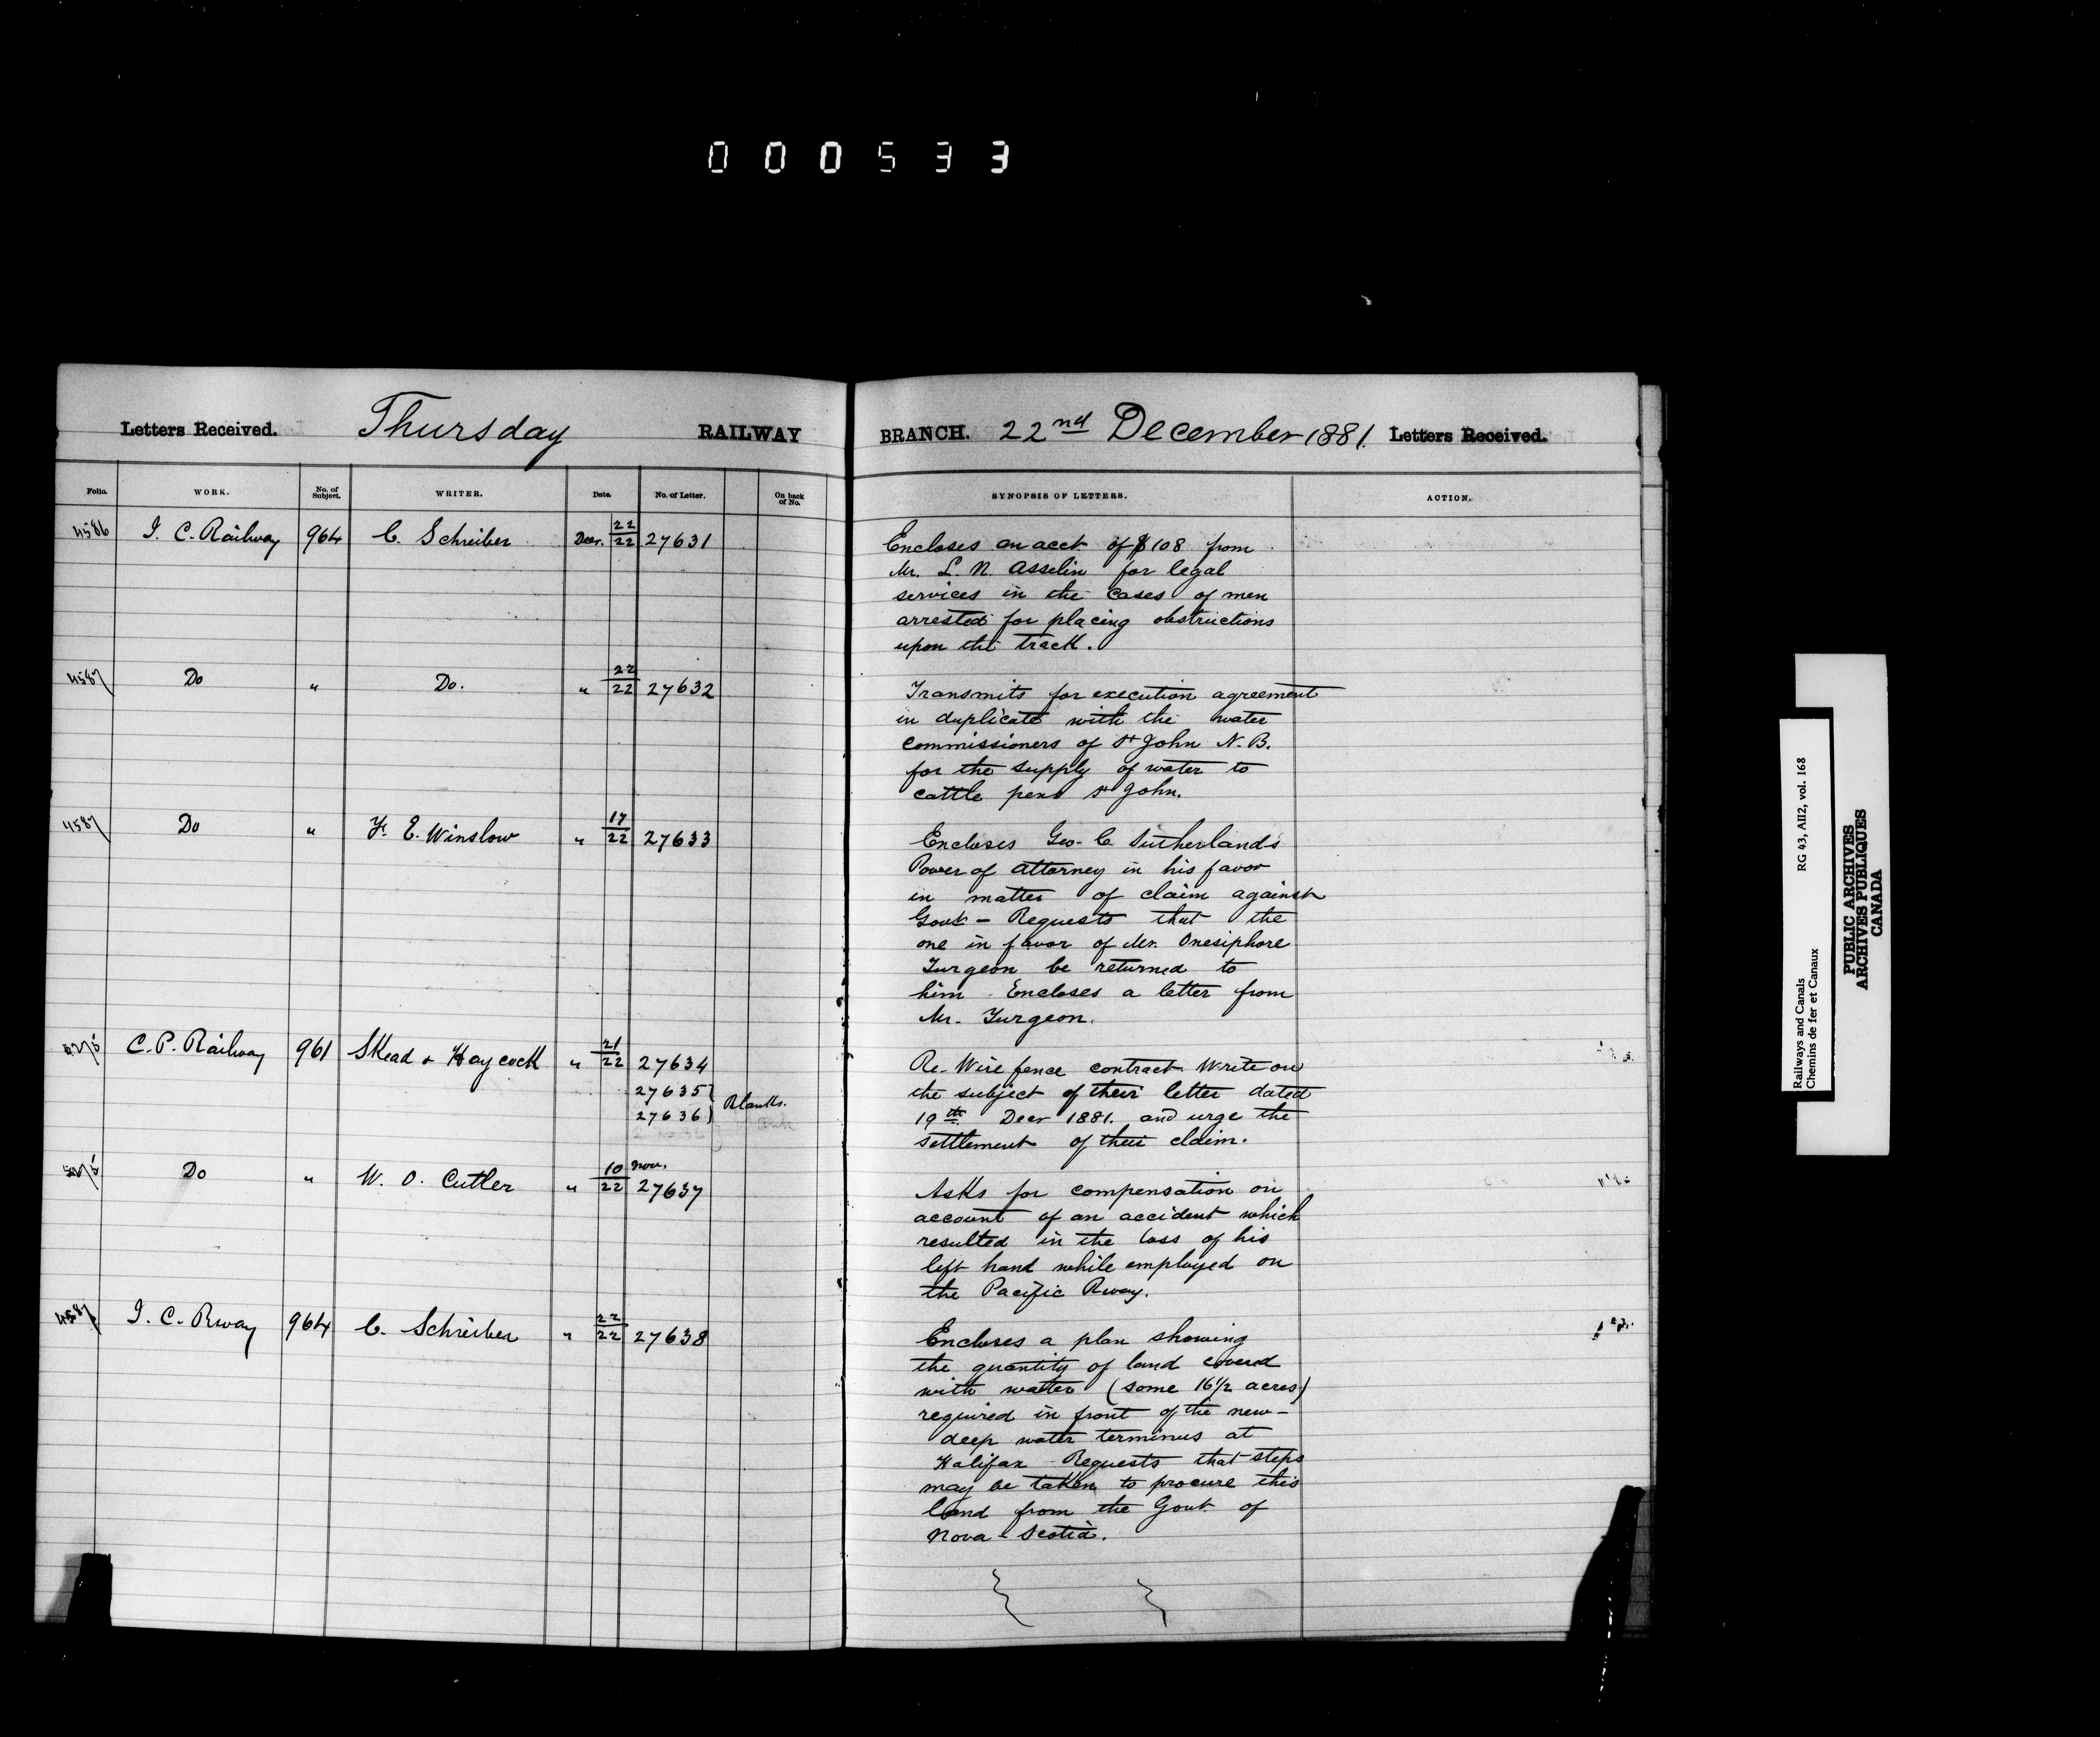 000533
Letters Received. Thursday RAILWAY BRANCH. 22nd December 1881. Letters Received.
Folio. WORK. No. of Subject. WRITER. Date. No. of Letter. On back of No. SYNOPSIS OF LETTERS. ACTION.
4586 I. C. Railway 964 C. Schreiber Decr. 22/22 27631
Encloses an acct. of $108 from
Mr. L. N. Asselin for legal
services in the cases of men
arrested for placing obstructions
upon the track.
4587 Do " Do. " 22/22 27632
Transmits for execution agreement
in duplicate with the water
commissioners of St John N. B.
for the supply of water to
cattle pens St John.
4587 Do " F. E. Winslow " 17/22 27633
Encloses Geo. C Sutherland's
Power of attorney in his favor
in matter of claim against
Govt - Requests that the
one in favor of Mr. Onesiphore
Turgeon be returned to
him. Encloses a letter from
Mr. Turgeon.
C. P. Railway 961 Skead & Haycock " 21/22 27634
27635
27636 } Blanks.
Re-Wire fence contract. Write on
the subject of their letter dated
19th Decr 1881. and urge the
settlement of their claim.
Do " W. O. Cutler " 10 Nov./22 27637
Asks for compensation on
account of an accident which
resulted in the loss of his
left hand while employed on
the Pacific Rway.
4587 I. C. Rway 964 C. Schreiber " 22/22 27638
Encloses a plan showing
the quantity of land covered
with water (some 16 1/2 acres)
required in front of the new-
deep water terminus at
Halifax - Requests that steps
may be taken to procure this
land from the Govt. of
Nova-Scotia.
Railways and Canals RG 43, AII2, vol. 168
Chemins de fer et Canaux
PUBLIC ARCHIVES
ARCHIVES PUBLIQUES
CANADA